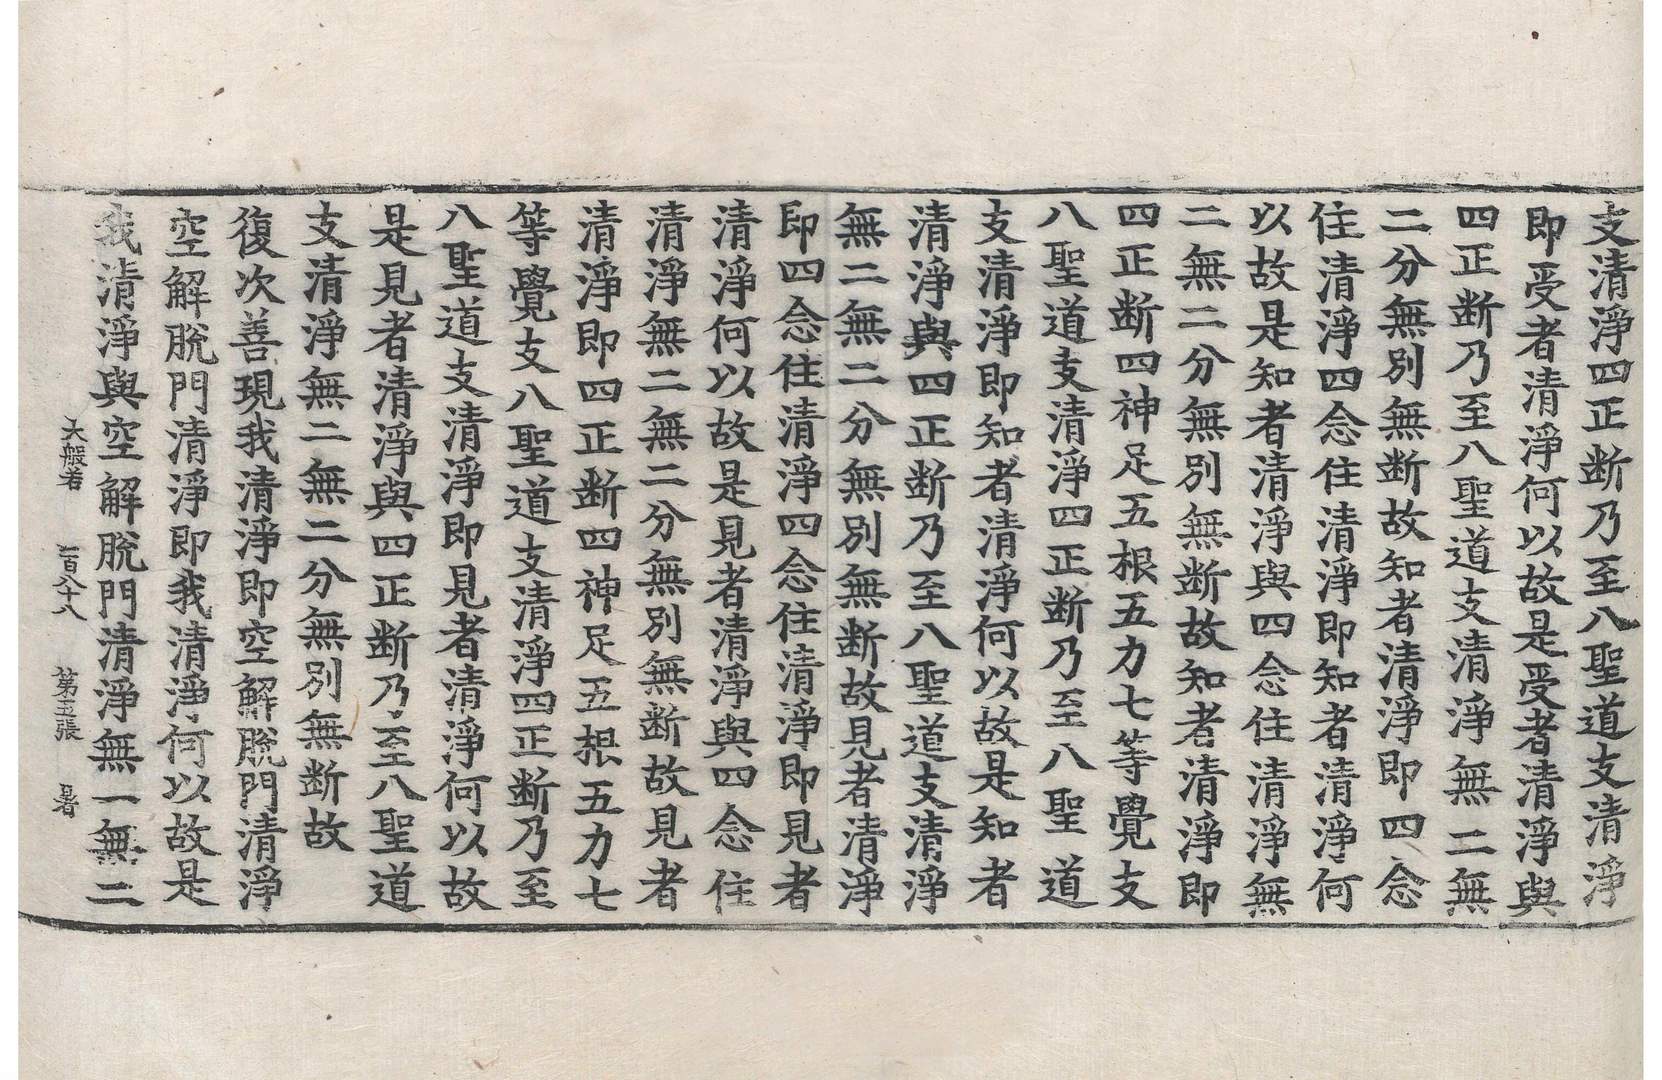 支清淨四正断乃至八聖道支清淨
即受者清淨何以故是受者清淨與
四正断乃至八聖道支清淨無二無
二分無別無断故知者清淨即四念
住清淨四念住清淨即知者清淨何
以故是知者清淨與四念住清淨無
二無二分無別無断故知者清淨即
四正断四神足五根五力七等覺支
八聖道支清淨四正断乃至八聖道
支清淨即知者清淨何以故是知者
清淨與四正断乃至八聖道支清淨
無二無二分無別無断故見者清淨
即四念住清淨四念住清淨即見者
清淨何以故是見者清淨與四念住
清淨無二無二分無別無断故見者
清淨即四正断四神足五根五力七
等覺支八聖道支清淨四正断乃至
八聖道支清淨即見者清淨何以故
是見者清淨與四正断乃至八聖道
支清淨無二無二分無別無断故
復次善現我清淨即空解脫門清淨
空解脫門清淨即我清淨何以故是
我清淨與空解脫門清淨無一無二
大般若 一百八十八 第五張 暑